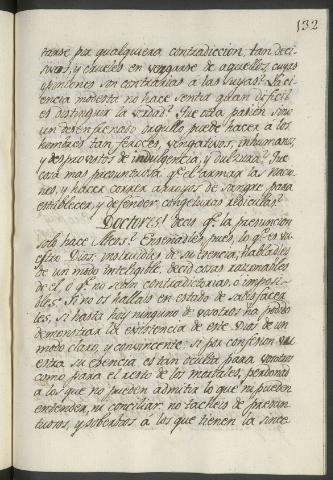 132
tarse por qualquiera contradiccion, tan deci-
sivos, y crueles en vengarse de aquellos, cuyas
opiniones son contrarias à las suyas? La ci-
encia modesta no hace sentir quan dificil
es distinguir la verdad? Que otra pasion sino
un desenfrenado orgullo puede hacer à los
hombres tan feroces, vengativos, inhumanos,
y desprovistos de indulgencia, y dulzura? Que
cosa mas presuntuosa qe. el armar las nacio-
nes, y hacer correr arroyos de sangre para
establecer, y defender congeturas ridiculas?
Doctores! decis qe. la presuncion
solo hace Ateos? Enseñadles pues, lo qe. es vu-
estro Dios; instruidles de su esencia; habladles
de un modo inteligible; decid cosas razonables
de el, ò qe. no sean contradictorias, ò imposi-
bles. Si no os hallais en estado de satisfacer
les, si hasta hoy ninguno de vosotros ha podido
demonstrar la existencia de este Dios de un
modo claro, y convincente; si por confesion vu-
estra su esencia es tan oculta para vosotros
como para el resto de los mortales, perdonad
a los que no pueden admitir lo que ni pueden
entender, ni conciliar; no tacheis de presun-
tuosos, y soberbios à los que tienen la since